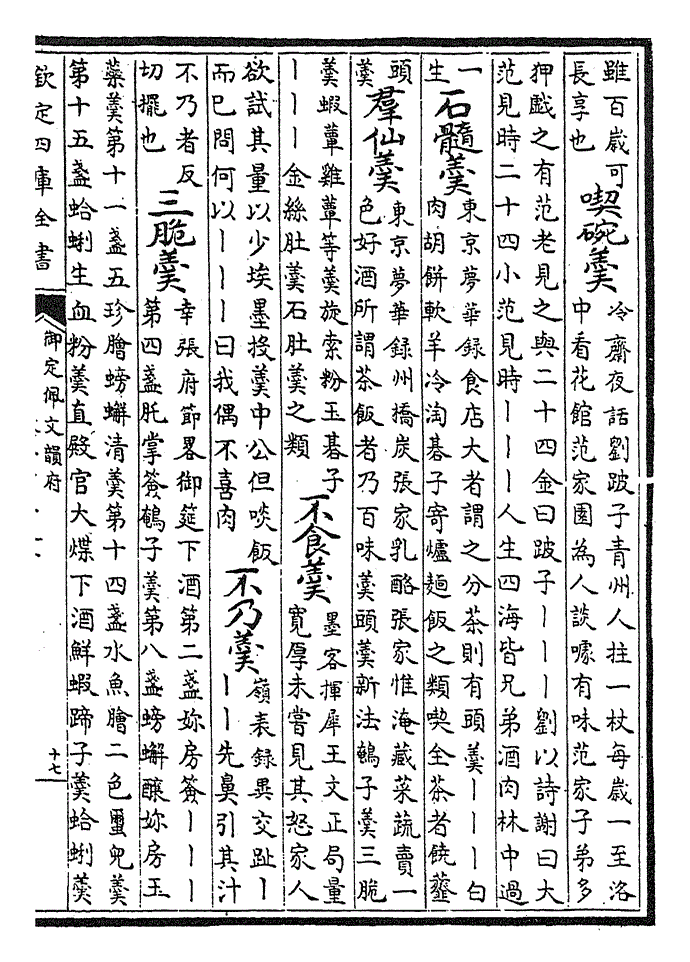 雖百歲可
長享也
喫碗羹
冷齋夜話劉跛子青州人拄一杖每歲一至洛
中看花館范家園為人談噱有味范家子弟多
狎戲之有范老見之與二十四金曰跛子丨丨丨劉以詩謝曰大
范見時二十四小范見時丨丨丨人生四海皆兄弟酒肉林中過
一
生
石髓羹
東京夢華録食店大者謂之分茶則有頭羹丨丨丨白
肉胡餅軟羊冷淘碁子寄爐麵飯之類喫全茶者饒虀
頭
羹
羣仙羹
東京夢華録州橋炭張家乳酪張家惟淹藏菜蔬賣一
色好酒所謂茶飯者乃百味羹頭羹新法鵪子羹三脆
羹蝦蕈雞蕈等羹旋索粉玉碁子
丨丨丨金絲肚羹石肚羹之類
不食羹
墨客揮犀王文正局量
寬厚未嘗見其怒家人
欲試其量以少埃墨投羹中公但啖飯
而已問何以丨丨丨曰我偶不喜肉
不乃羹
嶺表録異交趾丨
丨丨先鼻引其汁
不乃者反
切擺也
三脆羹
幸張府節畧御筵下酒第二盞妳房簽丨丨丨
第四盞肫掌簽鵪子羹第八盞螃蠏釀妳房玉
蘂羹第十一盞五珍膾螃蠏清羹第十四盞水魚膾二色璽兜羹
第十五盞蛤蜊生血粉羹直殿官大煠下酒鮮蝦蹄子羹蛤蜊羹
欽定四庫全書
御定佩文韻府
十七